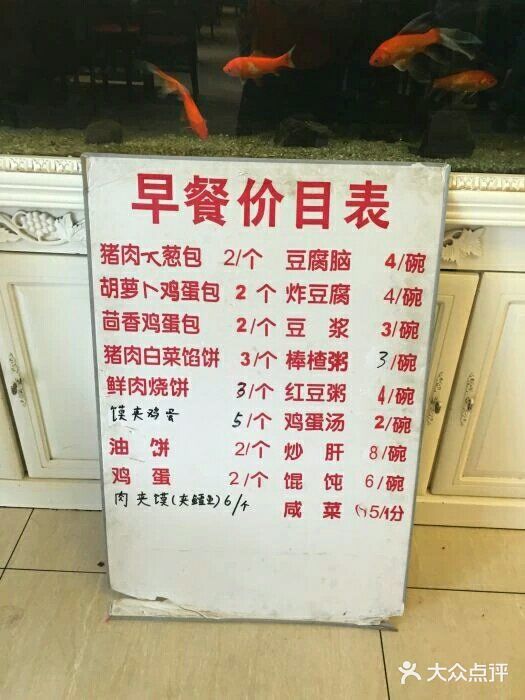 早餐价目表
猪肉大葱包 2/个 豆腐脑 4/碗
胡萝卜鸡蛋包 2 个 炸豆腐 4/碗
茴香鸡蛋包 2/个 豆 浆 3/碗
猪肉白菜馅饼 3/个 棒楂粥 3/碗
鲜肉烧饼 3/个 红豆粥 4/碗
馍夹鸡蛋 5/个 鸡蛋汤 2/碗
油 饼 2/个 炒 肝 8/碗
鸡 蛋 2/个 馄 饨 6/碗
肉夹馍 6/个 咸 菜 5/分
大众点评